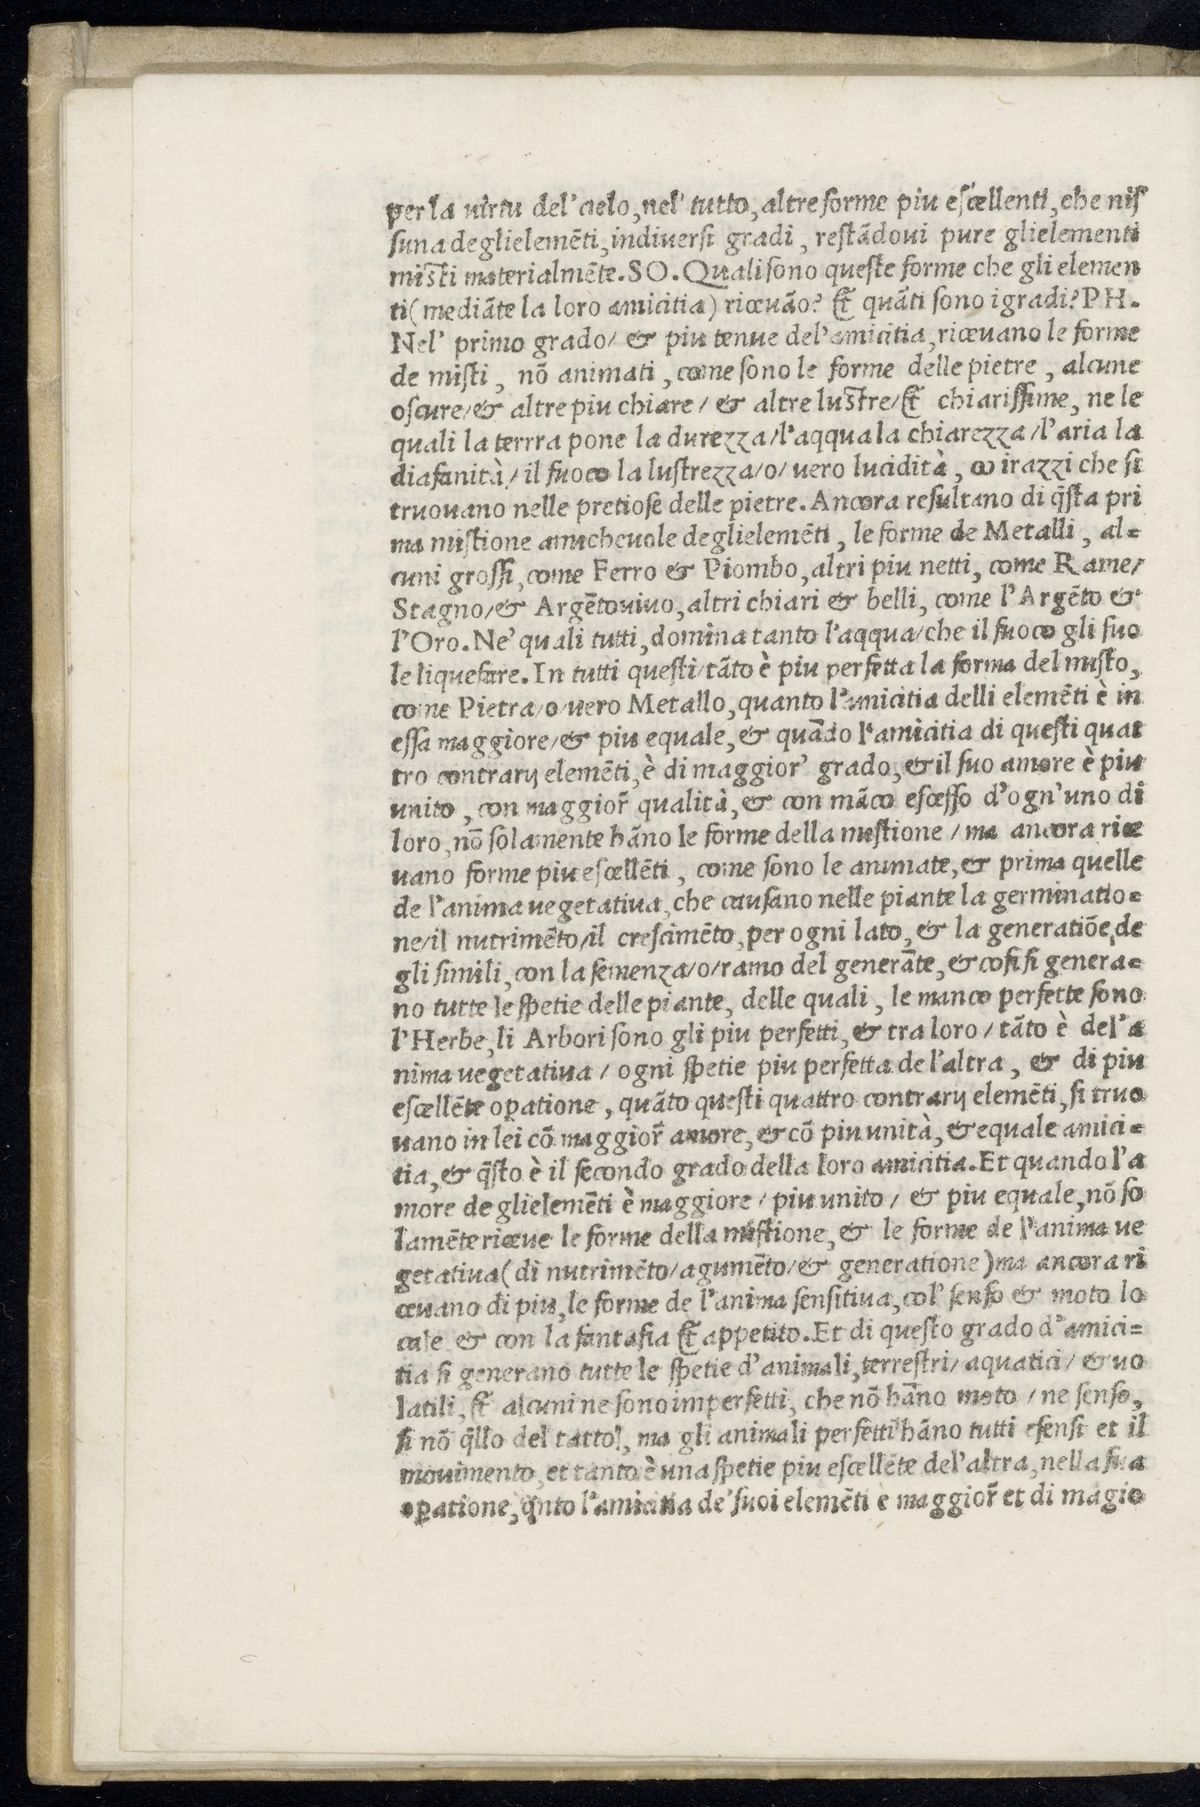 per la uirtu del' cielo, nel' tutto, altre forme piu escellenti, che nis
suna deglielemẽti, indiuersi gradi, restãdoui pure glielementi
misti materialmẽte. SO. Quali sono queste forme che gli elemen
ti (mediãte la loro amicitia) riceuão? Et quãti sono i gradi? PH.
Nel' primo grado/ & piu tenue del'amicitia, riceuano le forme
de misti, nõ animati, come sono le forme delle pietre, alcune
oscure/& altre piu chiare/ & altre lustre/Et chiarissime, ne le
quali la terrra pone la durezza/l'aqqua la chiarezza/l'aria la
diafanità/ il fuoco la lustrezza/o/ uero lucidità, co i razzi che si
truouano nelle pretiose delle pietre. Ancora resultano di q̃sta pri
ma mistione amicheuole deglielemẽti, le forme de Metalli, al=
cuni grossi, come Ferro & Piombo, altri piu netti, come Rame/
Stagno/& Argẽtouiuo, altri chiari & belli, come l'Argẽto &
l'Oro. Ne' quali tutti, domina tanto l'aqqua/che il fuoco gli suo
le liquefare. In tutti questi/tãto è piu perfetta la forma del misto,
come Pietra/o/uero Metallo, quanto l'amicitia delli elemẽti è in
essa maggiore/& piu equale, & quãdo l'amicitia di questi quat
tro contrarij elemẽti, è di maggior' grado, & il suo amore è piu
unito, con maggior̃ qualità, & con mãco escesso d'ogn'uno di
loro, nõ solamente hãno le forme della mistione/ma ancora rice
uano forme piu escellẽti, come sono le animate, & prima quelle
de l'anima uegetatiua, che causano nelle piante la germinatio=
ne/il nutrimẽto/il crescimẽto, per ogni lato, & la generatiõe, de
gli simili, con la semenza/o/ramo del generãte, & cosi si genera=
no tutte le spetie delle piante, delle quali, le manco perfette sono
l'Herbe, li Arbori sono gli piu perfetti, & tra loro/tãto è del'a
nima uegetatiua/ ogni spetie piu perfetta de l'altra, & di piu
escellẽte op̃atione, quãto questi quattro contrarij elemẽti, si truo
uano in lei cõ maggior̃ amore, & cõ piu unità, & equale amici=
tia, & q̃sto è il secondo grado della loro amicitia. Et quando l'a
more de glielemẽti è maggiore/ piu unito/ & piu equale, nõ so
lamẽte riceue le forme della mistione, & le forme de l'anima ue
getatiua (di nutrimẽto/agumẽto/& generatione) ma ancora ri
ceuano di piu, le forme de l'anima sensitiua, col' senso & moto lo
cale & con la fantasia Et appetito. Et di questo grado d'amici=
tia si generano tutte le spetie d'animali, terrestri/ aquatici/ & uo
latili, Et alcuni ne sono imperfetti, che nõ hãno moto/ ne senso,
si nõ q̃llo del tatto, ma gli animali perfetti hãno tutti esensi et il
mouimento, et tanto è una spetie piu escellẽte del'altra, nella sua
op̃atione, q̃nto l'amicitia de' suoi elemẽti e maggior̃ et di magio